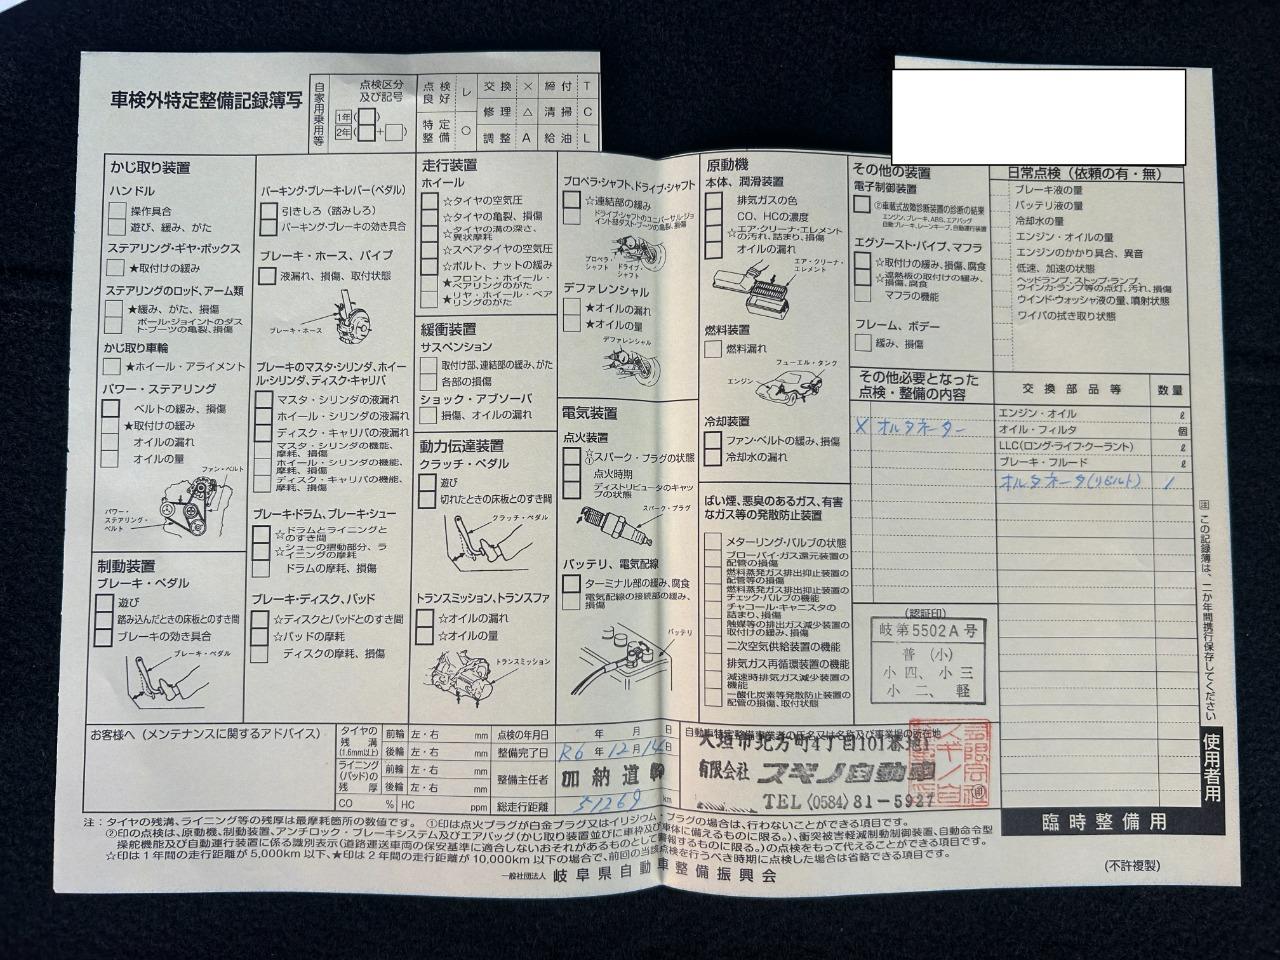 車検外特定整備記録簿写
自家用乗用等
点検区分
及び記号
1年( )
2年( + )
点検良好 レ 交換 × 締付 T
修理 △ 清掃 C
特定整備 ○ 調整 A 給油 L
かじ取り装置
ハンドル
操作具合
遊び、緩み、がた
ステアリング・ギヤ・ボックス
★取付けの緩み
ステアリングのロッド、アーム類
★緩み、がた、損傷
ボール・ジョイントのダスト・ブーツの亀裂、損傷
かじ取り車輪
★ホイール・アライメント
パワー・ステアリング
ベルトの緩み、損傷
★取付けの緩み
オイルの漏れ
オイルの量
ファン・ベルト
パワー・ステアリング・ベルト
制動装置
ブレーキ・ペダル
遊び
踏み込んだときの床板とのすき間
ブレーキの効き具合
ブレーキ・ペダル
パーキング・ブレーキ・レバー(ペダル)
引きしろ(踏みしろ)
パーキング・ブレーキの効き具合
ブレーキ・ホース、パイプ
液漏れ、損傷、取付状態
ブレーキ・ホース
ブレーキのマスタ・シリンダ、ホイール・シリンダ、ディスク・キャリパ
マスタ・シリンダの液漏れ
ホイール・シリンダの液漏れ
ディスク・キャリパの液漏れ
マスタ・シリンダの機能、摩耗、損傷
ホイール・シリンダの機能、摩耗、損傷
ディスク・キャリパの機能、摩耗、損傷
ブレーキ・ドラム、ブレーキ・シュー
☆ドラムとライニングとのすき間
☆シューの摺動部分、ライニングの摩耗
ドラムの摩耗、損傷
ブレーキ・ディスク、パッド
☆ディスクとパッドとのすき間
☆パッドの摩耗
ディスクの摩耗、損傷
走行装置
ホイール
☆タイヤの空気圧
☆タイヤの亀裂、損傷
☆タイヤの溝の深さ、異状摩耗
☆スペアタイヤの空気圧
☆ボルト、ナットの緩み
★フロント・ホイール・ベアリングのがた
★リヤ・ホイール・ベアリングのがた
緩衝装置
サスペンション
取付け部、連結部の緩み、がた
各部の損傷
ショック・アブソーバ
損傷、オイルの漏れ
動力伝達装置
クラッチ・ペダル
遊び
切れたときの床板とのすき間
クラッチ・ペダル
トランスミッション、トランスファ
☆オイルの漏れ
☆オイルの量
トランスミッション
プロペラ・シャフト、ドライブ・シャフト
☆連結部の緩み
ドライブ・シャフトのユニバーサル・ジョイント部ダスト・ブーツの亀裂、損傷
プロペラ・シャフト ドライブ・シャフト
デファレンシャル
★オイルの漏れ
★オイルの量
デファレンシャル
電気装置
点火装置
☆①スパーク・プラグの状態
点火時期
ディストリビュータのキャップの状態
スパーク・プラグ
バッテリ、電気配線
ターミナル部の緩み、腐食
電気配線の接続部の緩み、損傷
バッテリ
原動機
本体、潤滑装置
排気ガスの色
CO、HCの濃度
☆エア・クリーナ・エレメントの汚れ、詰まり、損傷
オイルの漏れ
エア・クリーナ・エレメント
燃料装置
燃料漏れ
フューエル・タンク
エンジン
冷却装置
ファン・ベルトの緩み、損傷
冷却水の漏れ
ばい煙、悪臭のあるガス、有害なガス等の発散防止装置
メターリング・バルブの状態
ブローバイ・ガス還元装置の配管の損傷
燃料蒸発ガス排出抑止装置の配管等の損傷
燃料蒸発ガス排出抑止装置のチェック・バルブの機能
チャコール・キャニスタの詰まり、損傷
触媒等の排出ガス減少装置の取付けの緩み、損傷
二次空気供給装置の機能
排気ガス再循環装置の機能
減速時排気ガス減少装置の機能
一酸化炭素等発散防止装置の配管の損傷、取付状態
その他の装置
電子制御装置
②車載式故障診断装置の診断の結果
エンジン、ブレーキ、ABS、エアバッグ
自動ブレーキ、レーンキープ、自動運行装置
エグゾースト・パイプ、マフラ
☆取付けの緩み、損傷、腐食
☆遮熱板の取付けの緩み、損傷、腐食
マフラの機能
フレーム、ボデー
緩み、損傷
その他必要となった点検・整備の内容
× オルタネーター
(認証印)
岐第5502A号
普(小)
小四、小三
小二、軽
日常点検(依頼の有・無)
ブレーキ液の量
バッテリ液の量
冷却水の量
エンジン・オイルの量
エンジンのかかり具合、異音
低速、加速の状態
ヘッドランプ、ストップ・ランプ、ウインカ・ランプ等の点灯、汚れ、損傷
ウインド・ウォッシャ液の量、噴射状態
ワイパの拭き取り状態
交換部品等 数量
エンジン・オイル ℓ
オイル・フィルタ 個
LLC(ロング・ライフ・クーラント) ℓ
ブレーキ・フルード ℓ
オルタネータ(リビルト) 1
注 この記録簿は、二か年間携行保存してください
使用者用
お客様へ(メンテナンスに関するアドバイス)
タイヤの残溝(1.6mm以上) 前輪 左・右 mm
後輪 左・右 mm
ライニング(パッド)の残厚 前輪 左・右 mm
後輪 左・右 mm
CO % HC ppm
点検の年月日 年 月 日
整備完了日 R6年12月14日
整備主任者 加納道幹
総走行距離 51269 km
自動車特定整備事業者の氏名又は名称及び事業場の所在地
大垣市北方町4丁目101番地1
有限会社 スギノ自動車
TEL (0584) 81-5927
臨時整備用
注:タイヤの残溝、ライニング等の残厚は最摩耗箇所の数値です。 ①印は点火プラグが白金プラグ又はイリジウム・プラグの場合は、行わないことができる項目です。
②印の点検は、原動機、制動装置、アンチロック・ブレーキシステム及びエアバッグ(かじ取り装置並びに車枠及び車体に備えるものに限る。)、衝突被害軽減制動制御装置、自動命令型
操舵機能及び自動運行装置に係る識別表示(道路運送車両の保安基準に適合しないおそれがあるものとして警報するものに限る。)の点検をもって代えることができる項目です。
☆印は1年間の走行距離が5,000km以下、★印は2年間の走行距離が10,000km以下の場合で、前回の当該点検を行うべき時期に点検した場合は省略できる項目です。
一般社団法人 岐阜県自動車整備振興会
(不許複製)